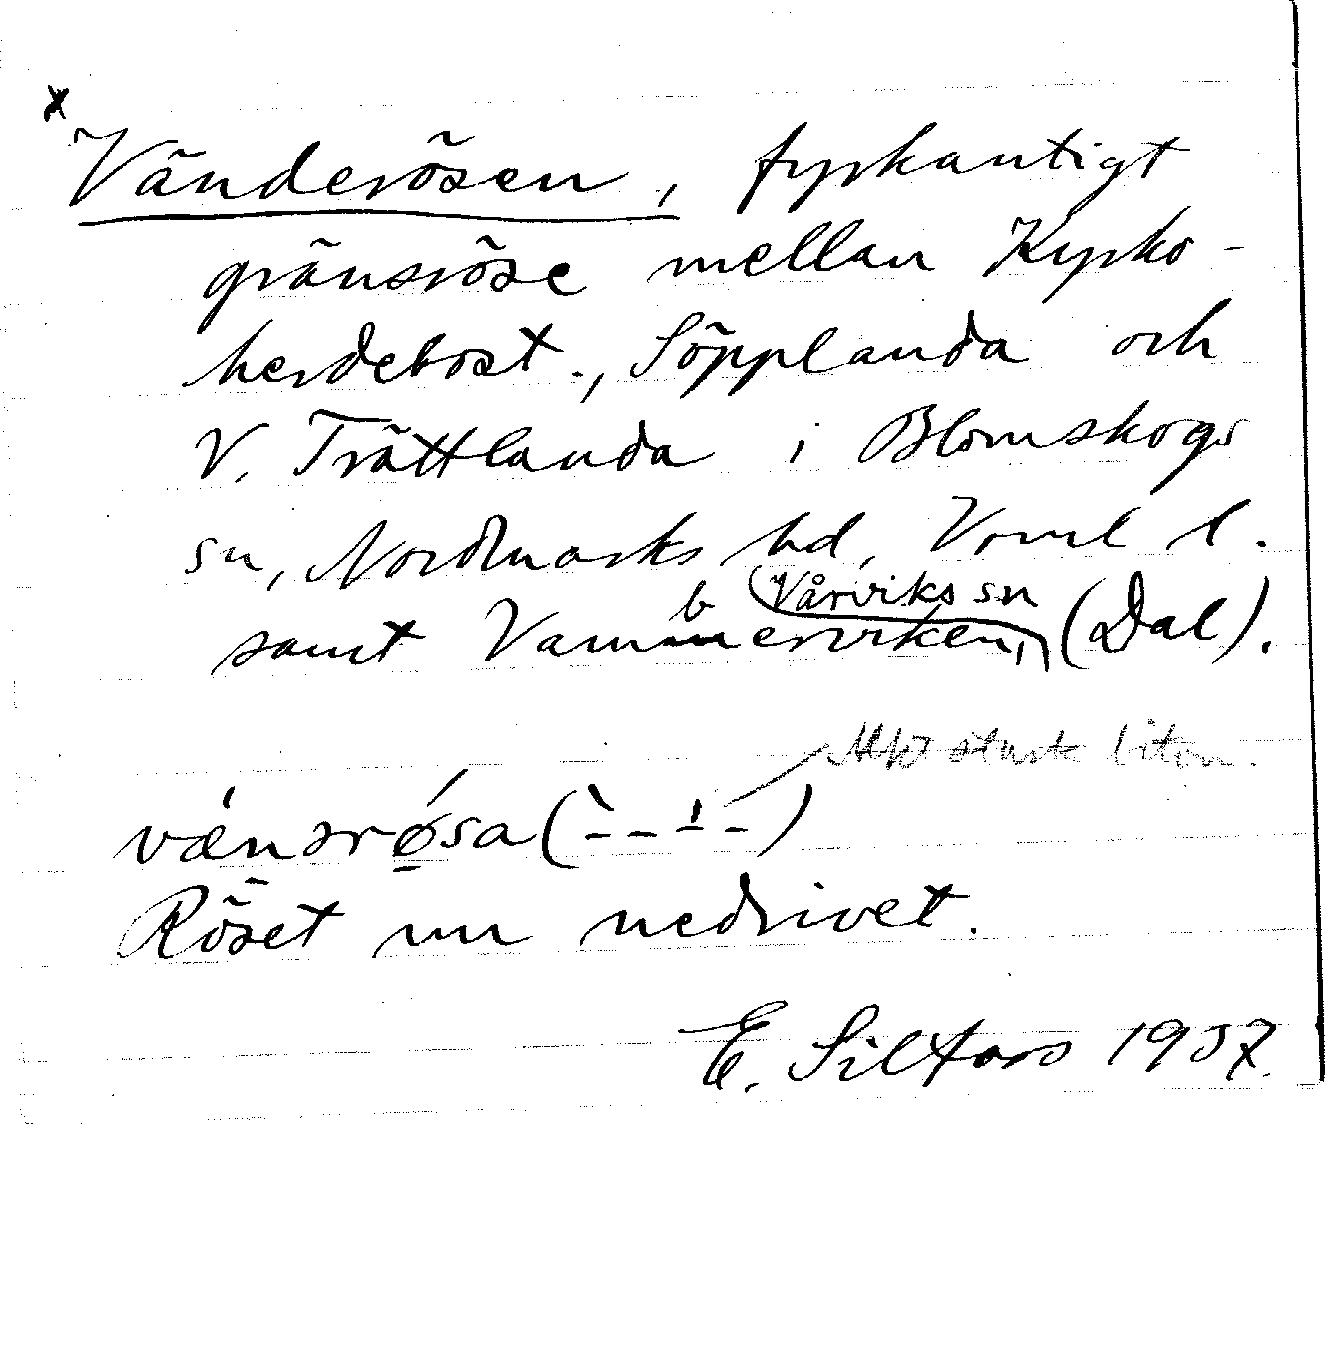 x
Vänderösen, fyrkantigt
gränsröse mellan Kyrko-
herdebost., Söpplanda och
V. Trättlanda i Blomskogs
sn, Nordmarks hd, Vrml l.
samt Vambervikens, Vårviks sn (Dal).
stark biton.
vænərǿ̱sa (`- - ¹- -)
Röset nu nedrivet.
E. Silfors 1937.